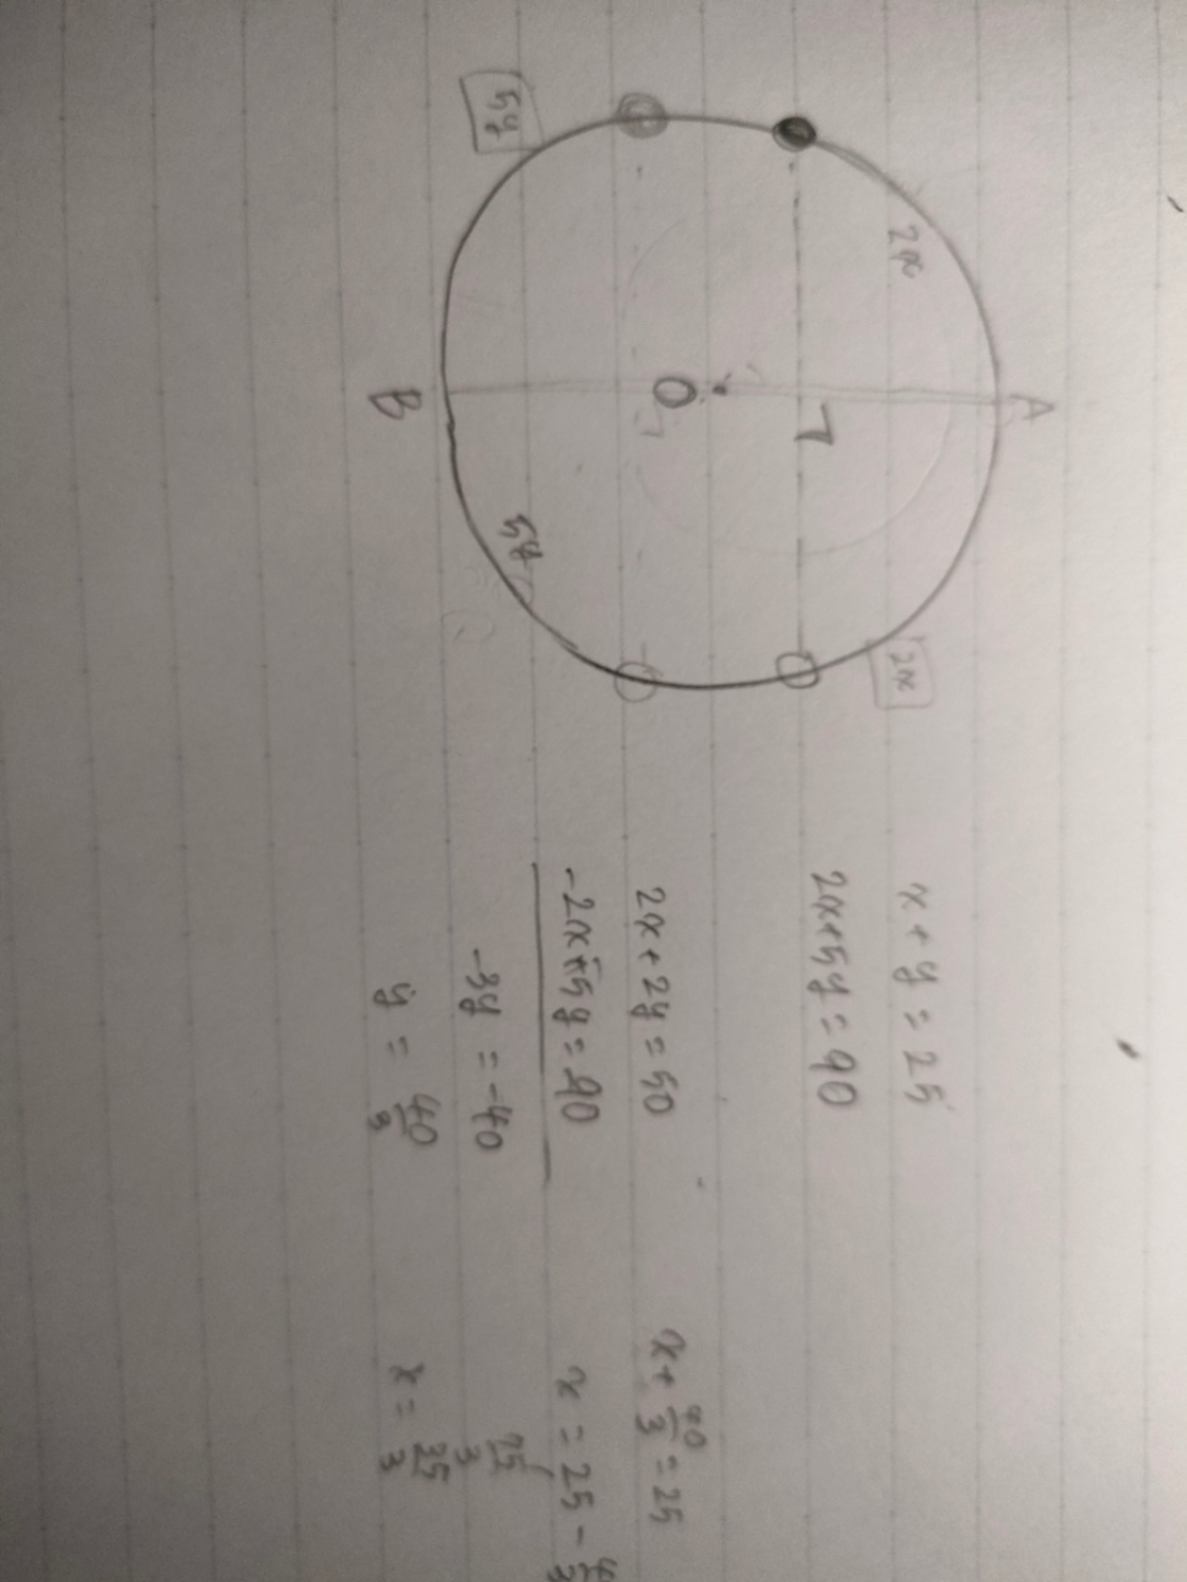 A
2x
2x
O
5y
5y
B
x + y = 25
2x+5y = 90
2x + 2y = 50
-2x+5y = 90
-3y = -40
y = 40/3
x + 40/3 = 25
x = 25 -
25/3
x = 35/3